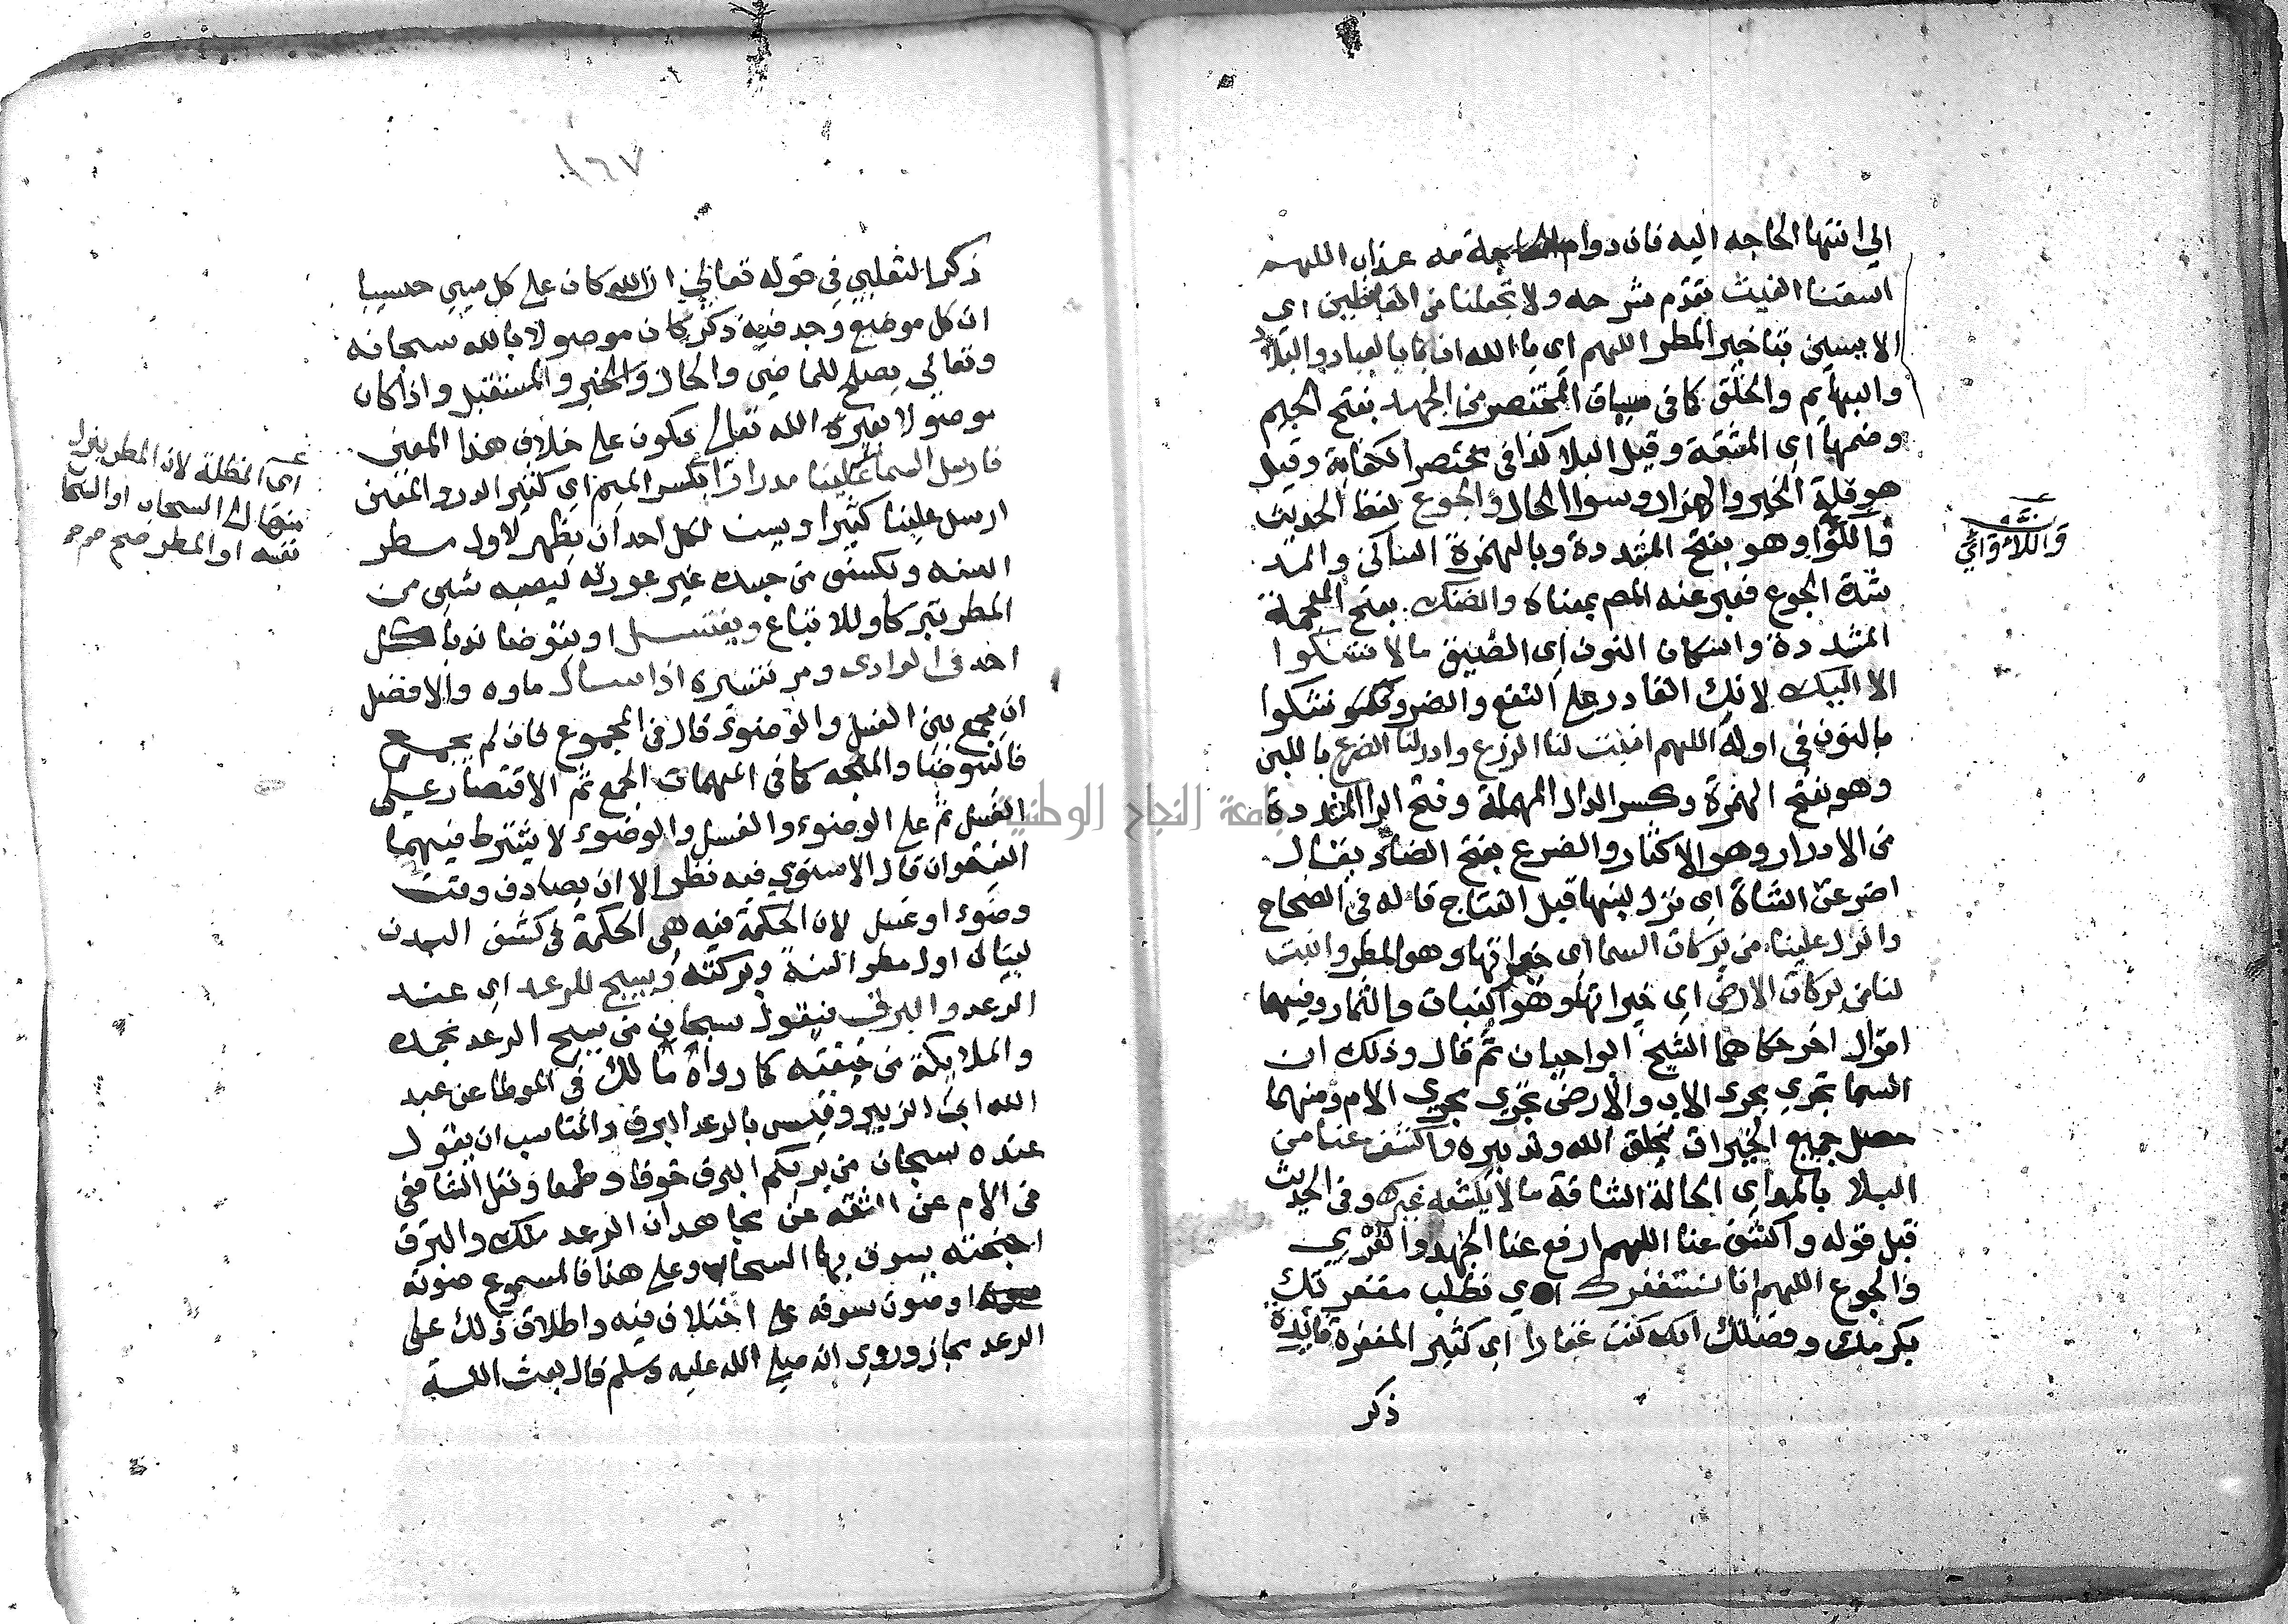 الي انتها الحاجه اليه فان دوام الحاجة مه عذاب اللهم
اسقنا الغيث تقدم شرحه ولا تجعلنا من القانطين اي
الايسين بتاخير المطر اللهم اي يا الله ان بالعباد والبلاد
والبهايم والخلق كما في سياق المختصر من الجهد بفتح الجيم
وضمها اي المشقة وقيل البلا كذا في مختصر الكفاية وقيل
هو قلة الخير والهزال وسوا الحال والجوع لفظ الحديث
واللاوا وهو بفتح المشددة وبالهمزة الساكن والمد
شدة الجوع فعبر عنه المص بمعناه والضنك بفتح المعجمة
المشددة واسكان النون اي الضيق ما لا نشكوا
الا اليك لانك القادر على النفع والضر ونشكوا
بالنون في اوله اللهم انبت لنا الزرع وادر لنا الضرع باللبن
وهو بفتح الهمزة وكسر الدال المهملة وفتح الرا المشددة
من الادرار وهو الاكثار والضرع بفتح الضاد يقال
اضرعت الشاة اي نزل لبنها قبل النتاج قاله في الصحاح
وانزل علينا من بركات السما اي خيراتها وهو المطر وانبت
لنا من بركات الارض اي خيراتها وهو النبات والثمار وفيهما
اقوال اخر حكاهما الشيخ ابو احيان ثم قال وذلك ان
السما تجري مجرى الاب والارض تجري مجري الام ومنهما
حصل جميع الخيرات بخلق الله وتدبيره واكشف عنا من
البلا بالمد اي الحالة الشاقة ما لا يكشفه غيرك وفي الحديث
قبل قوله واكشف عنا اللهم ارفع عنا الجهد والعري
والجوع اللهم انا نستغفرك اي نطلب مغفرتك
بكرمك وفضلك انك كنت غفارا اي كثير المغفرة فائدة
ذكر
واللاواي
١٦٧
ذكر الثعلبي في قوله تعالي ان الله كان على كل شيي حسيبا
ان كل موضع وجد فيه ذكر كان موصولا بالله سبحانه
وتعالي يصلح للماضي والحال والخبر والمستقبل واذا كان
موصولا بغيره الله تعالى يكون على خلاف هذا المعنى
فارسل السما علينا مدرارا بكسر الميم اي كثير الدر والمعنى
ارسل علينا كثيرا ويسن لكل احد ان يظهر لاول مطر
السنه ويكشف من جسده غير عورته ليصبه شيى من
المطر تبركا وللاتباع ويغتسل او يتوضا ندبا كل
احد في الوادي ومر تفسيره اذا سال ماوه والافضل
ان يجمع بين الغسل والوضوء قال في المجموع فان لم يجمع
فالتوضا والمتجه كما في المهمات الجمع ثم الاقتصار على
الغسل ثم على الوضوء والغسل والوضوء لا يشترط فيهما
النية وان قال الاسنوي فيه نظر الا ان يصادف وقت
وضوء او غسل لان الحكمة فيه هي الحكمة في كشف البدن
لينال اول مطر السنة وبركته ويسبح للرعد اي عند
الرعد والبرق فيقول سبحان من يسبح الرعد بحمده
والملايكة من خيفته كما رواه مالك في الموطا عن عبد
الله ابن الزبير وقيس بالرعد البرق والمناسب ان يقول
عنده سبحان من يريكم البرق خوفا وطمعا ونقل الشافعي
في الام عن الثقه عن مجاهد ان الرعد ملك والبرق
اجنحته يسوق بها السحاب وعلى هذا فالمسموع صوته
او صوت سوقه على اختلاف فيه واطلاق ذلك على
الرعد مجاز وروي انه صلى الله عليه وسلم قال بعث الله
اي المظلة لان المطر ينزل
منها الى السحاب او السحاب
نفسه او المطر صح
جامعة النجاح الوطنية